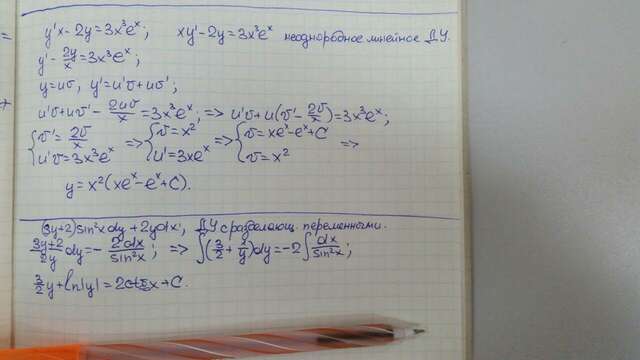 y'x-2y=3x³eˣ; xy'-2y=3x³eˣ неоднородное линейное ДУ.
y'-2y/x=3x³eˣ;
y=uv, y'=u'v+uv';
u'v+uv'-2uv/x=3x³eˣ; => u'v+u(v'-2v/x)=3x³eˣ;
{v'=2v/x {v=x² {v=xeˣ-eˣ+C
{u'v=3x³eˣ => {u'=3xeˣ => {v=x² =>
y=x²(xeˣ-eˣ+C).
(3y+2)sin²x dy+2ydx; ДУ с разделяющ. переменными.
3y+2/2y dy=-2dx/sin²x; => ∫(3/2+1/y)dy=-2∫dx/sin²x;
3/2y+ln|y|=2ctgx+C.